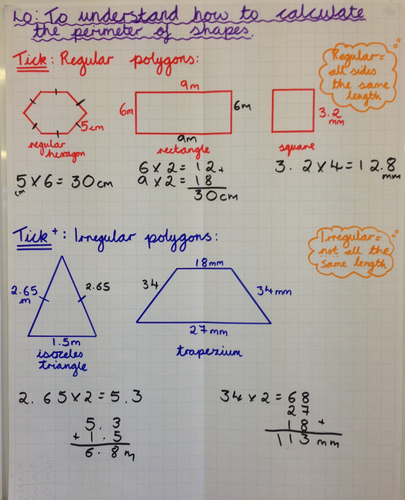 LO: To understand how to calculate
the perimeter of shapes.
Tick: Regular polygons:
Regular =
all sides
the same
length
5cm
regular
hexagon
9m
6m
6m
9m
rectangle
3.2
mm
square
5 x 6 = 30cm
cm
6 x 2 = 12 +
9 x 2 = 18
30cm
3.2 x 4 = 12.8
mm
Tick+: Irregular polygons:
Irregular =
not all the
same length
2.65
m
2.65
1.5m
isoceles
triangle
18mm
34
34mm
27mm
trapezium
2.65 x 2 = 5.3
5.3
+ 1.5
6.8m
34 x 2 = 68
27
18 +
113 mm